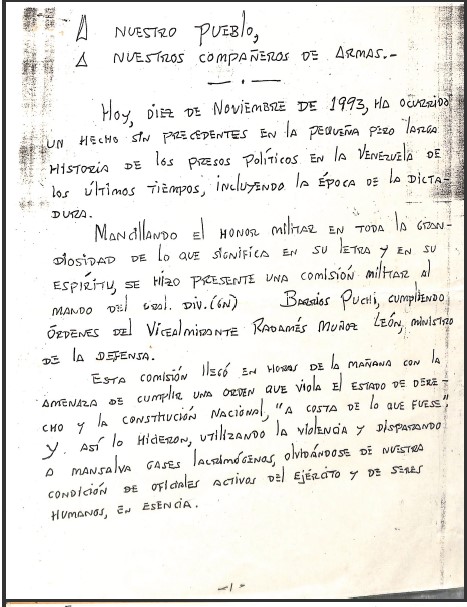 A NUESTRO PUEBLO,
A NUESTROS COMPAÑEROS DE ARMAS.-
HOY, DIEZ DE NOVIEMBRE DE 1993, HA OCURRIDO
UN HECHO SIN PRECEDENTES EN LA PEQUEÑA PERO LARGA
HISTORIA DE LOS PRESOS POLÍTICOS EN LA VENEZUELA DE
LOS ÚLTIMOS TIEMPOS, INCLUYENDO LA ÉPOCA DE LA DICTA-
DURA.
MANCILLANDO EL HONOR MILITAR EN TODA LA GRAN-
DIOSIDAD DE LO QUE SIGNIFICA EN SU LETRA Y EN SU
ESPÍRITU, SE HIZO PRESENTE UNA COMISIÓN MILITAR AL
MANDO DEL GRAL. DIV. (GN) BARRIOS PUCHI, CUMPLIENDO
ÓRDENES DEL VICEALMIRANTE RADAMÉS MUÑOZ LEÓN, MINISTRO
DE LA DEFENSA.
ESTA COMISIÓN LLEGÓ EN HORAS DE LA MAÑANA CON LA
AMENAZA DE CUMPLIR UNA ORDEN QUE VIOLA EL ESTADO DE DERE-
CHO Y LA CONSTITUCIÓN NACIONAL, "A COSTA DE LO QUE FUESE",
Y. ASÍ LO HICIERON, UTILIZANDO LA VIOLENCIA Y DISPARANDO
A MANSALVA GASES LACRIMÓGENOS, OLVIDÁNDOSE DE NUESTRA
CONDICIÓN DE OFICIALES ACTIVOS DEL EJÉRCITO Y DE SERES
HUMANOS, EN ESENCIA.
-1-